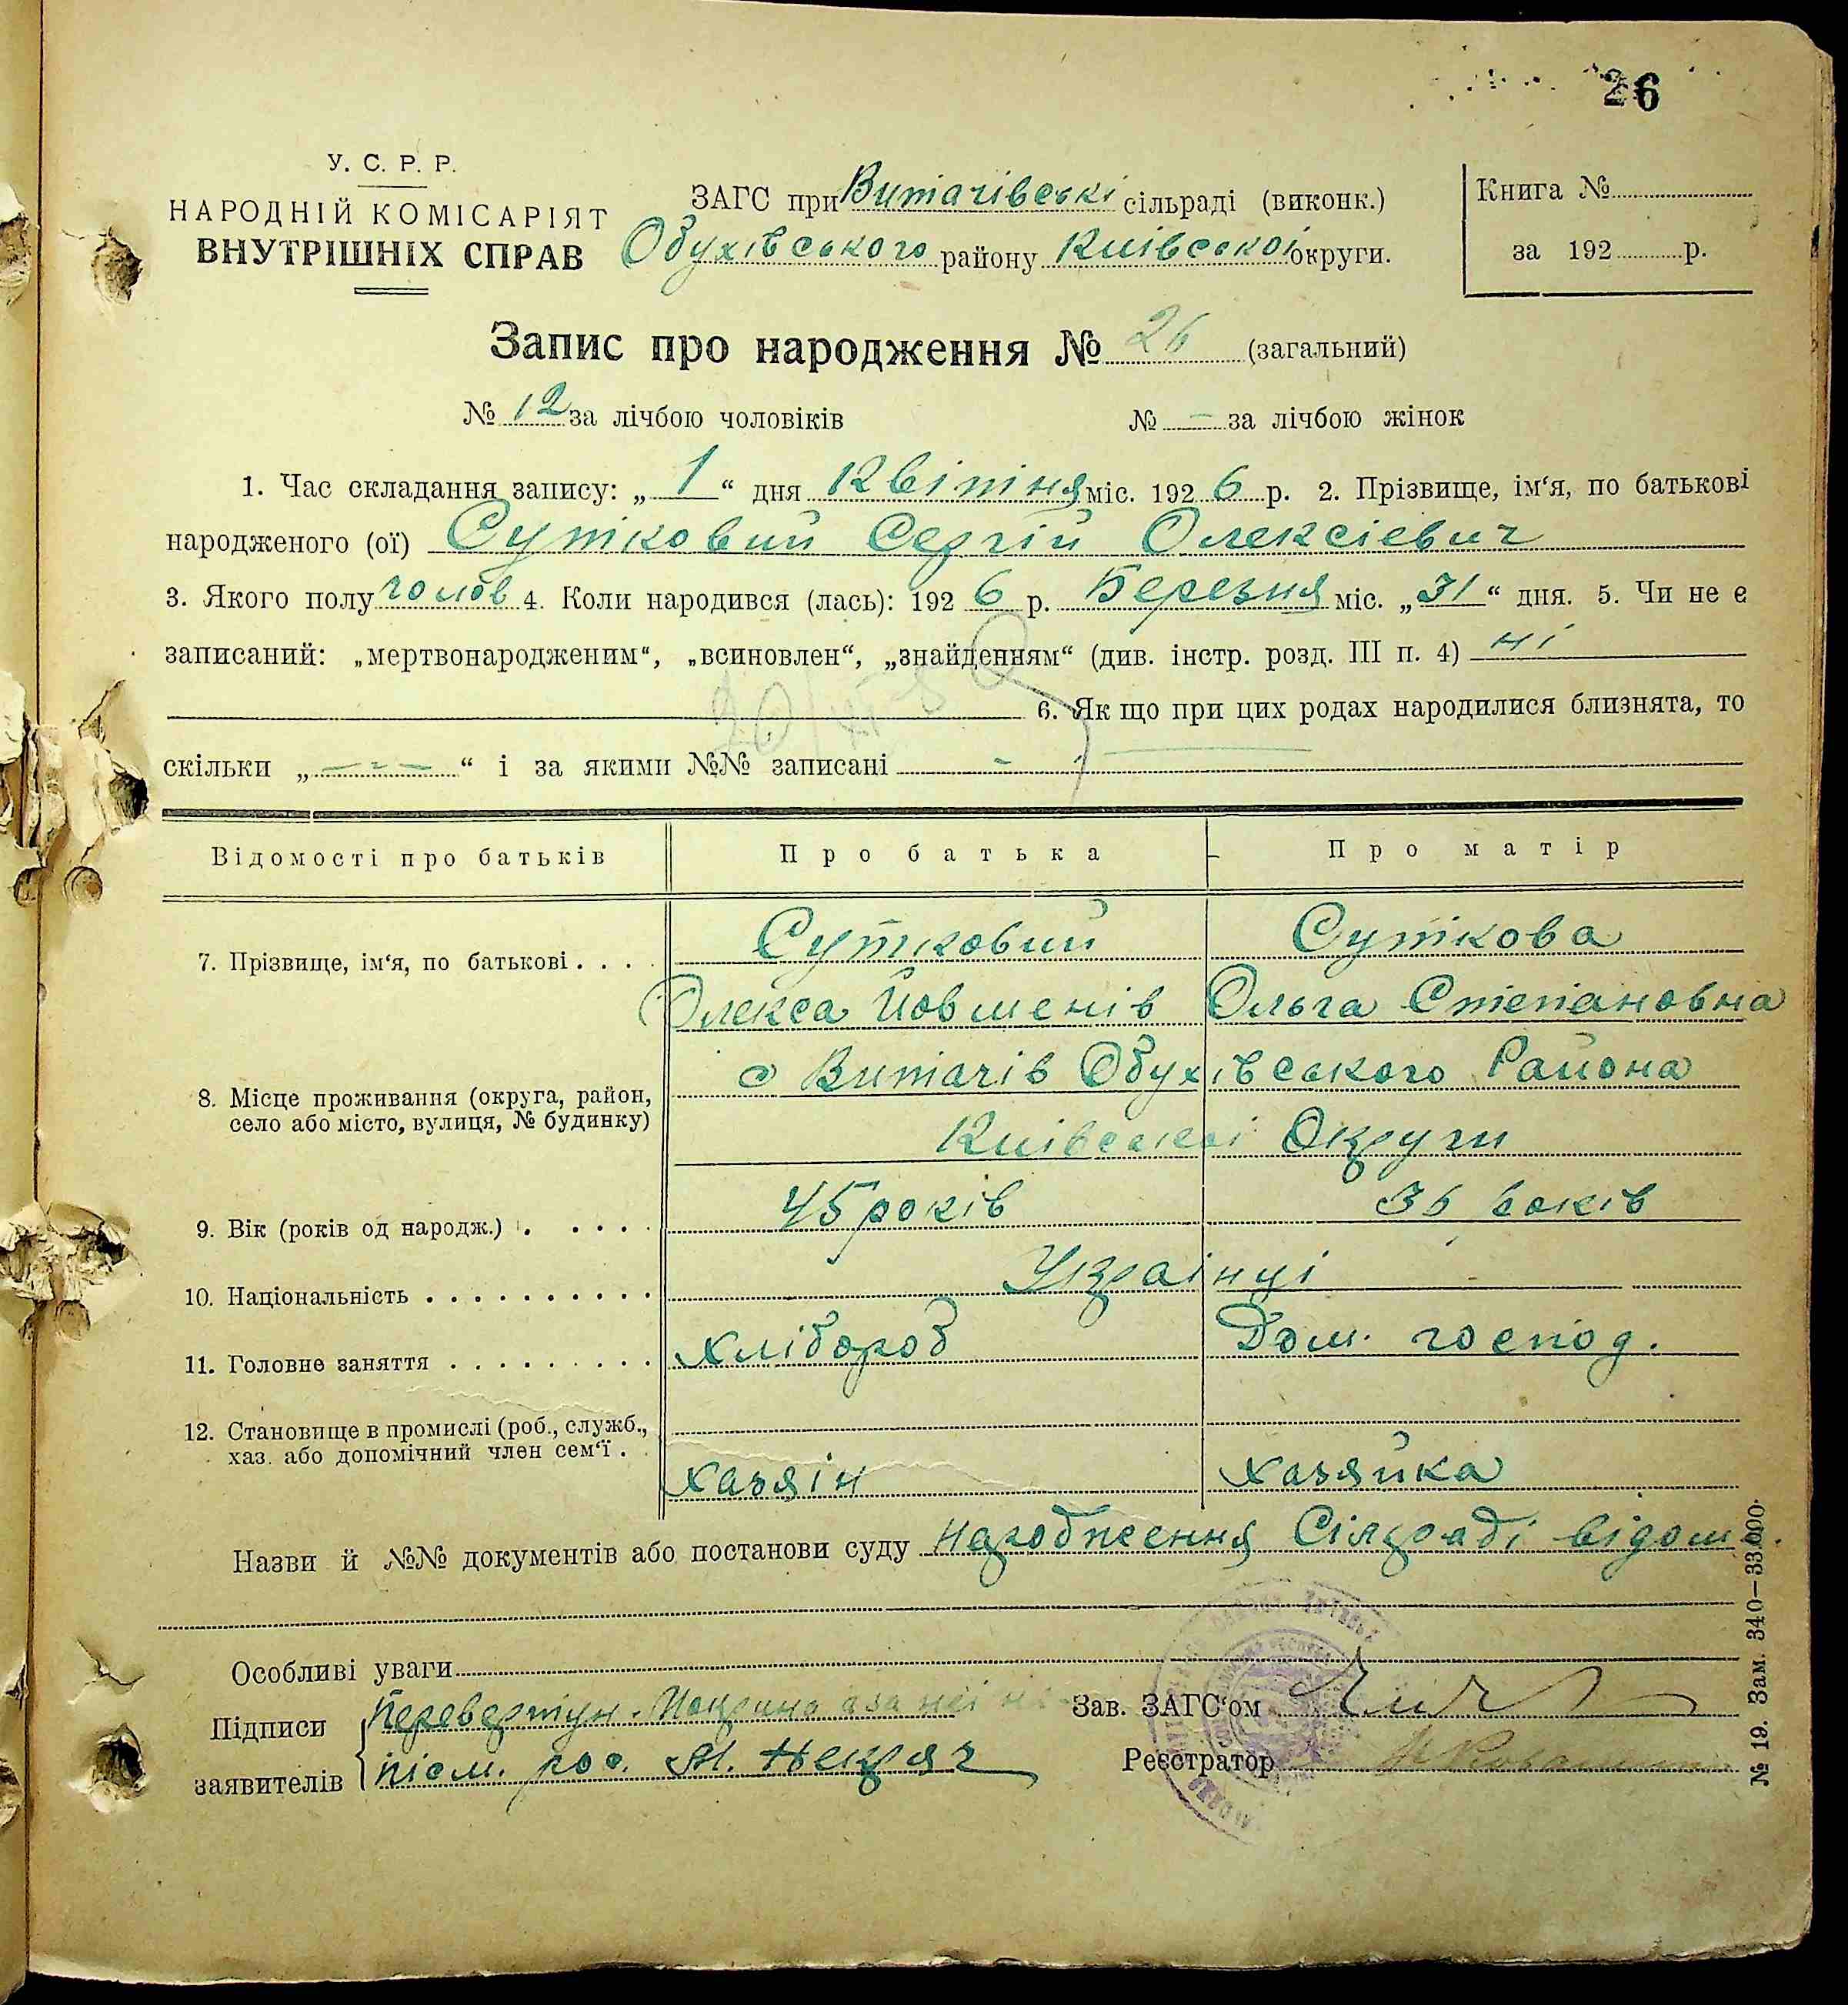 26
У. С. Р. Р.
НАРОДНІЙ КОМІСАРІЯТ
ВНУТРІШНІХ СПРАВ
ЗАГС при Витачівські сільраді (виконк.)
Обухівського району Київської округи.
Книга №
за 192 р.
Запис про народження № 26 (загальний)
№ 12 за лічбою чоловіків № – за лічбою жінок
1. Час складання запису: „ 1 “ дня Квітня міс. 192 6 р. 2. Прізвище, ім‘я, по батькові
народженого (ої) Сутковий Сергій Олексієвич
3. Якого полу чолов 4. Коли народився (лась): 192 6 р. Березня міс. „ 31 “ дня. 5. Чи не є
записаний: „мертвонародженим“, „всиновлен“, „знайденням“ (див. інстр. розд. III п. 4) ні
6. Як що при цих родах народилися близнята, то
скільки „ – - – “ і за якими №№ записані -
Відомості про батьків Про батька Про матір
7. Прізвище, ім‘я, по батькові . . . . Сутковий Суткова
Олекса Йовменів Ольга Степановна
8. Місце проживання (округа, район,
село або місто, вулиця, № будинку)
с Витачів Обухівського Района
Київської Округи
9. Вік (років од народж.) . . . . . 45 років 36 років
10. Національність . . . . . . . . . . Українці
11. Головне заняття . . . . . . . . . Хлібороб Дом. господ.
12. Становище в промислі (роб., служб.,
хаз. або допомічний член сем‘ї .
хазяін хазяйка
Назви й №№ документів або постанови суду народження Сілраді відом.
Особливі уваги
Підписи
заявителів
Перевертун. за неі
písм. рос. М. Некряч
Зав. ЗАГС‘ом
Реєстратор
№ 19. Зам. 340—33.000.